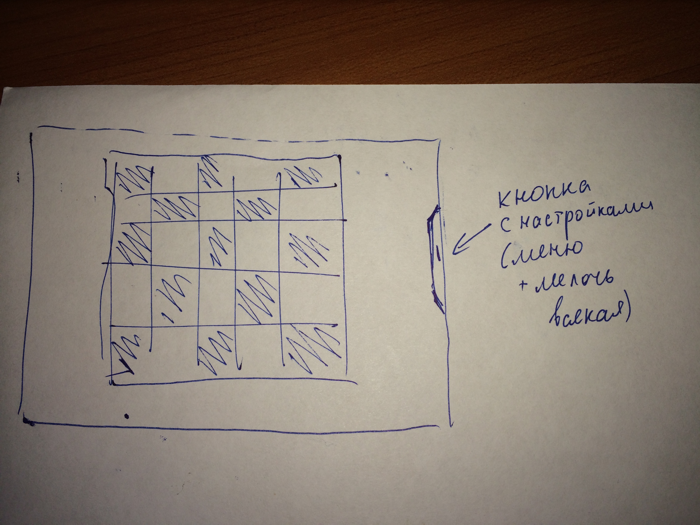 кнопка
с настройками
(меню
+ мелочь
всякая)